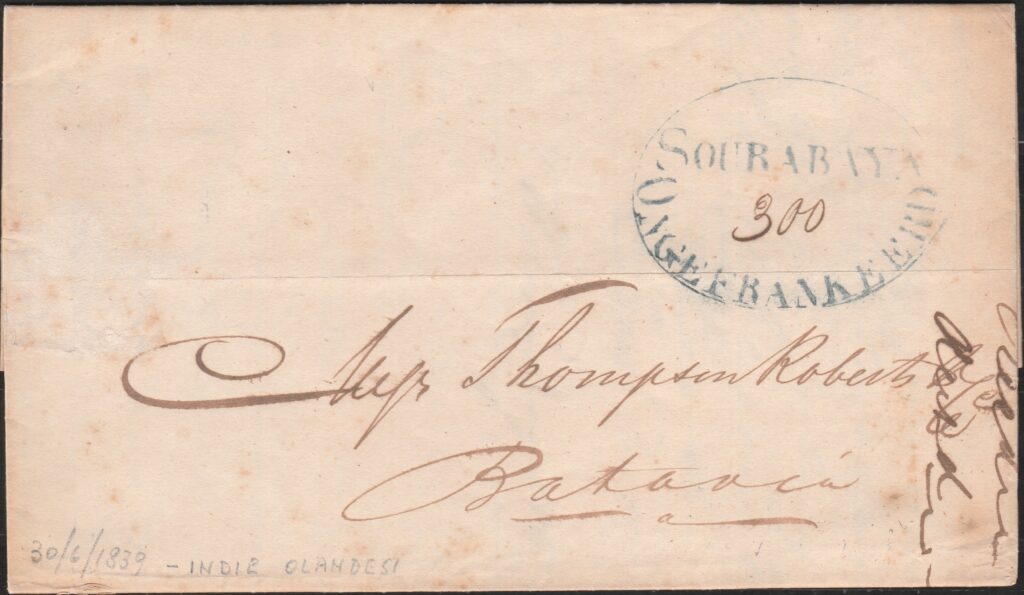 SOURABAYA
300
ONGEFRANKEERD
Messrs Thompson Roberts & Co
Batavia
30/6/1839 - INDIE OLANDESI